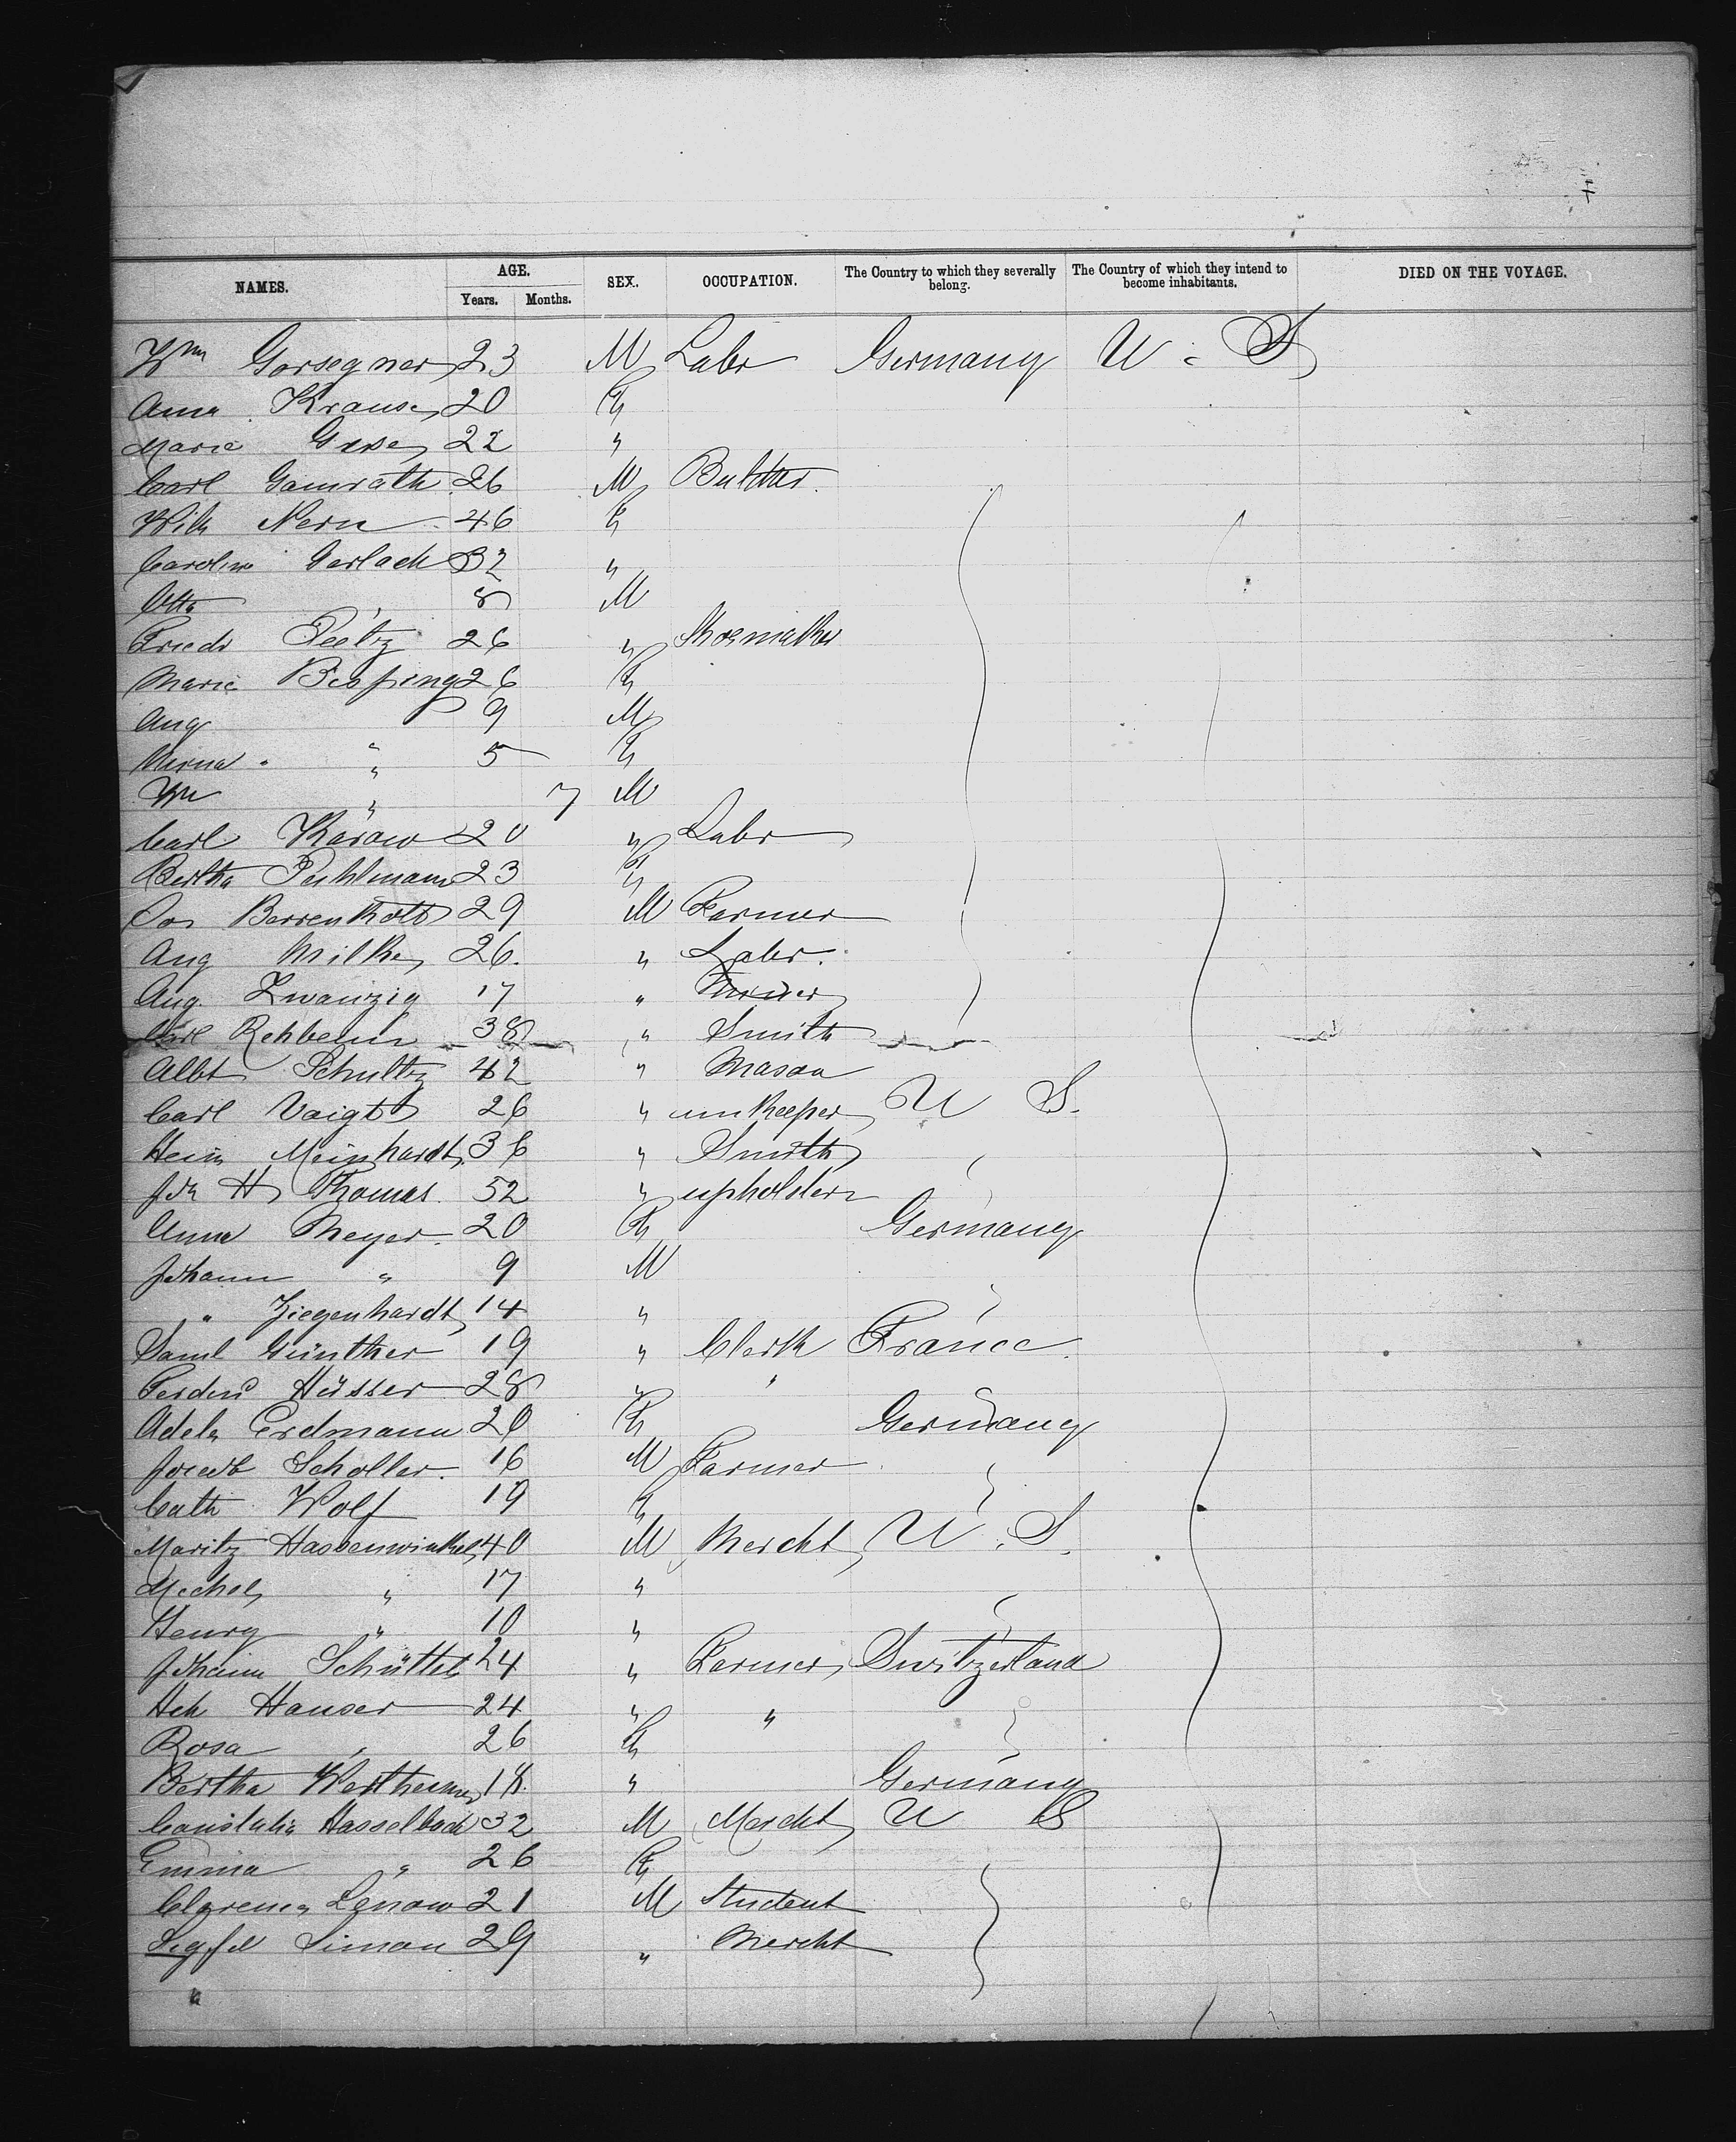 NAMES. AGE. Years. Months. SEX. OCCUPATION. The Country to which they severally belong. The Country of which they intend to become inhabitants. DIED ON THE VOYAGE.
Wm Gorsegner 23 M Labr Germany U. S
Anna Krause 20 F
Marie Guse 22 "
Carl Gamrath 26 M Butcher
Wilh Nern 46 F
Caroline Gerlach 32 "
Otto " 8 M
Friedr Peetz 26 " Shoemaker
Marie Bisping 26 F
Aug 9 M
Minna " " 5 F
Wm " 7 M
Carl Karow 20 " Labr
Bertha Puhlmann 23 F
Jos Berrenkott 29 M Farmer
Aug Milke 26. " Labr.
Aug. Zwanzig 17 "
Carl Rehbein 38 " Smith
Albt Schultz 42 " Mason
Carl Voigt 26 " innkeeper U S.
Hein Meinhardt 36 " Smith
Joh H Thomas. 52 " upholder
Anna Meyer 20 F Germany
Johann " 9 M
" Ziegenhardt 14 "
Saml Günther 19 " Clerk France
Ferdind Hüsser 28 " "
Adele Erdmann 20 F Germany
Jacob Scholler. 16 M Farmer
Cath Wolf 19 F
Moritz Hassenwinkel 40 M Mercht U. S.
Michel " 17 "
Henry " 10 "
Johann Schüttel 24 " Farmer Switzerland
Hch Hauser 24 " "
Rosa " 26 F
Bertha Wertheimer 18. " Germany
Hasselbach 32 M Mercht U S
Emma " 26 F
Clarence Lenow 21 M Student
Sigfd Simon 29 " Mercht